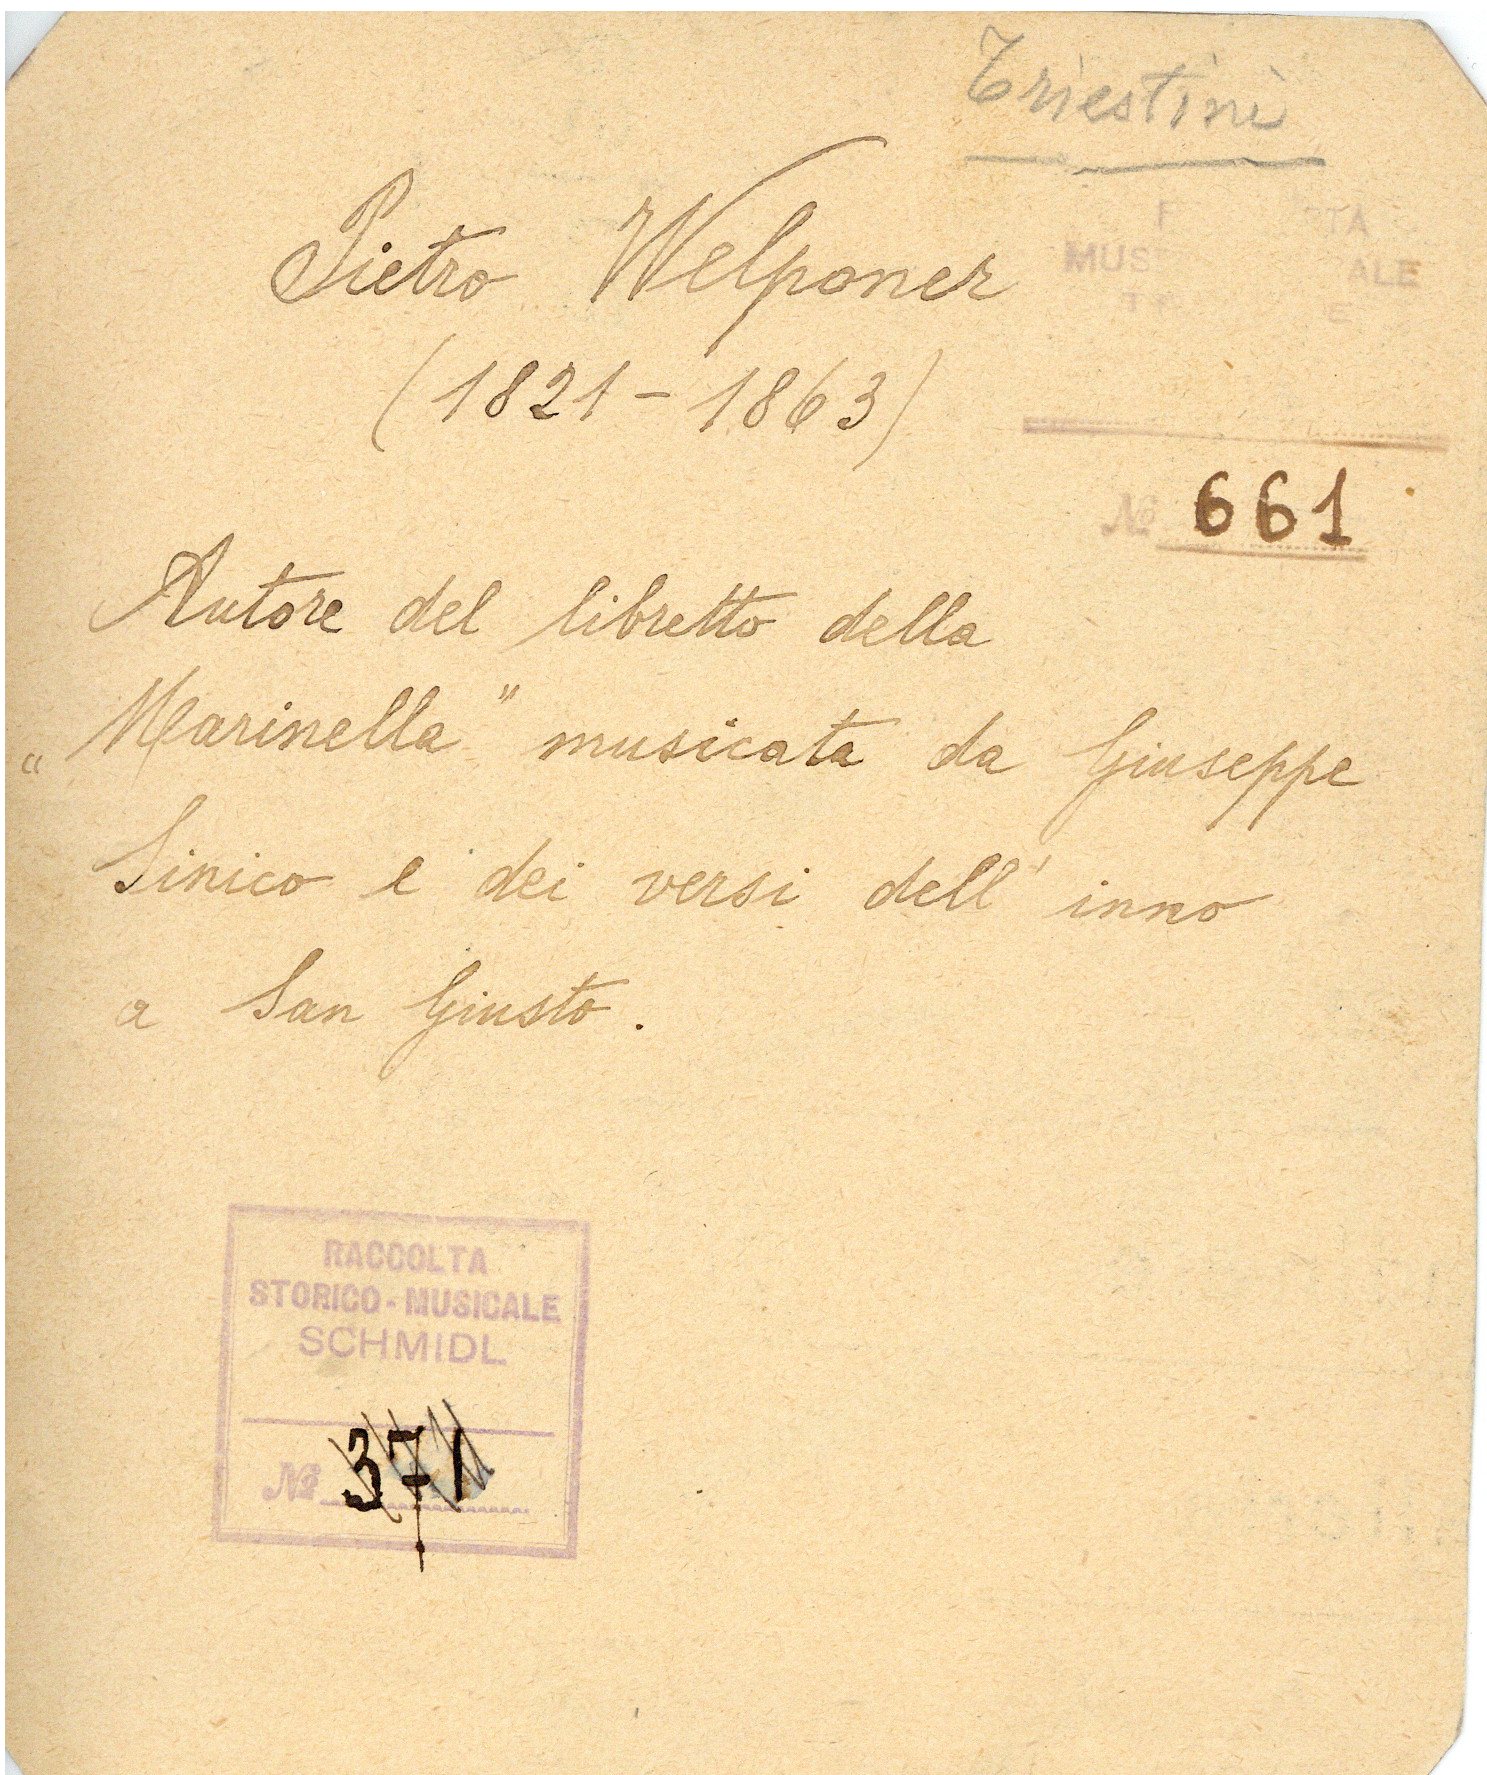 Triestini
Pietro Welponer
(1821 - 1863)
№ 661
Autore del libretto della
„Marinella" musicata da Giuseppe
Sinico e dei versi dell' inno
a San Giusto.
RACCOLTA
STORICO-MUSICALE
SCHMIDL
№ 371